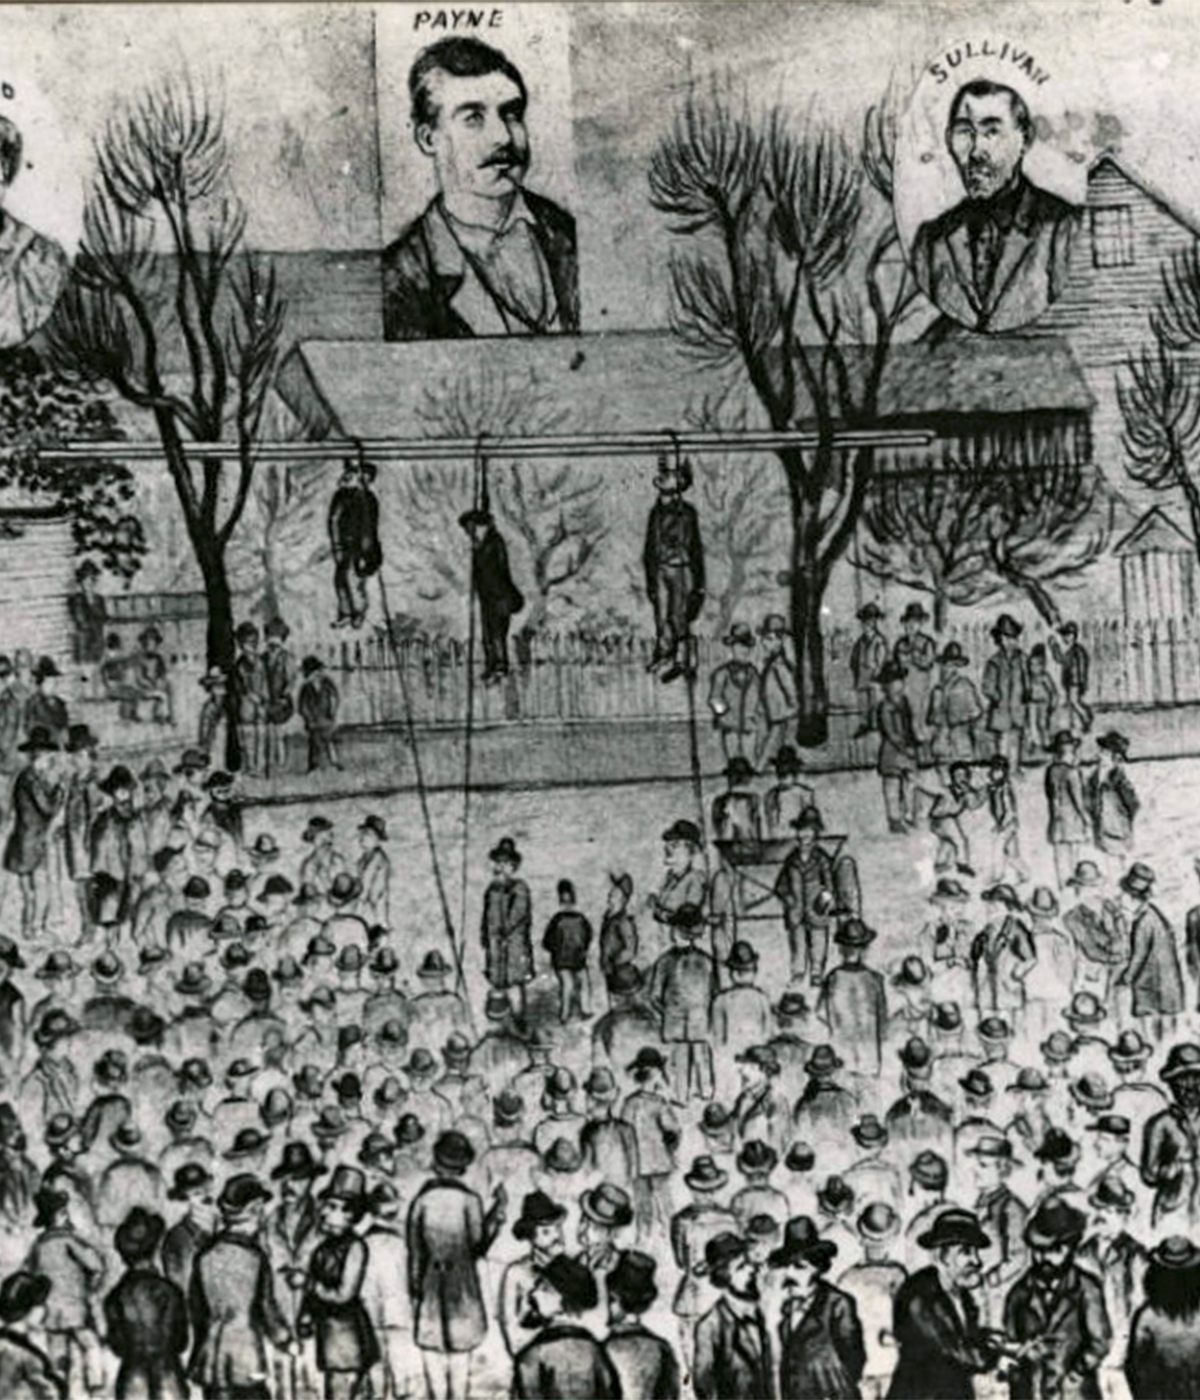 PAYNE
SULLIVAN